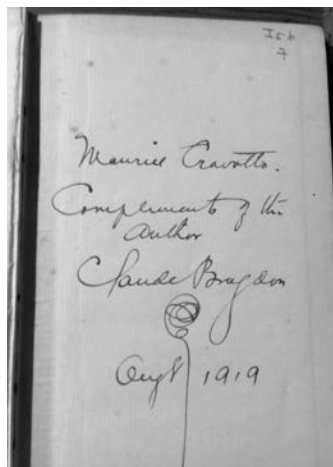 I56
7
Maurice Cravotto.
Compliments of the
Author
Claude Bragdon
Augt 1919